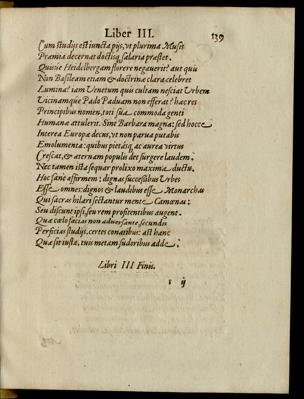 Liber III. 139
Cum studijs est iuncta pijs, vt plurima Musis
Præmia decernat doctisq́; salaria præstet.
Quis sic Heidelbergam florere negauerit? aut quis
Non Basileam etiam & doctrinæ clara celebret
Lumina? iam Venetum quis cultam nesciat Vrbem
Vicinamque Pado Paduam non efferat? hæ res
Principibus nomen, toti sua commoda genti
Humanæ attulerit. Sint Barbara magna: sed hocce
Interea Europæ decus, vt non parua putabis
Emolumenta: quibus pietásq; ac aurea virtus
Crescat, & æternam populis det surgere laudem.
Nec tamen ista sequar prolixo maxima ductu,
Hoc sanè affirmem: dignas successibus Vrbes
Esse omnes: dignos & laudibus esse Monarchas
Qui sacras hilari sectantur mente Camœnas:
Seu discunt ipsi, seu rem profitentibus augent.
Quæ cœlo facias non aduersante secundo
Perficias studijs, certes conatibus: ast hanc
Quæ sit iusta, tuis metam sudoribus adde.
Libri III Finis.
s ij